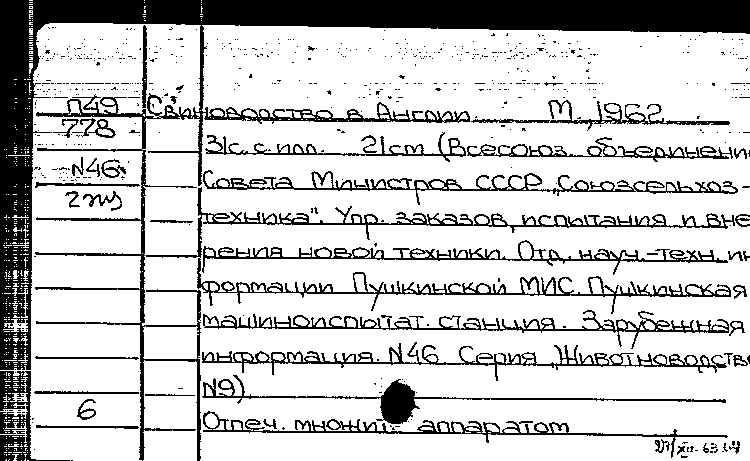 П49 Свиноводство в Англии. М., 1962
778
31с. с илл. 21cm (Всесоюз. объединени
N46
Совета Министров СССР „Союзсельхоз-
2 экз
техника". Упр. заказов, испытания и вне
рения новой техники. Отд. науч.-техн. ин
формации Пушкинской МИС. Пушкинская
машиноиспытат. станция. Зарубежная
информация. N46 Серия „Животноводство
N9)
6
Отпеч. множит. аппаратом